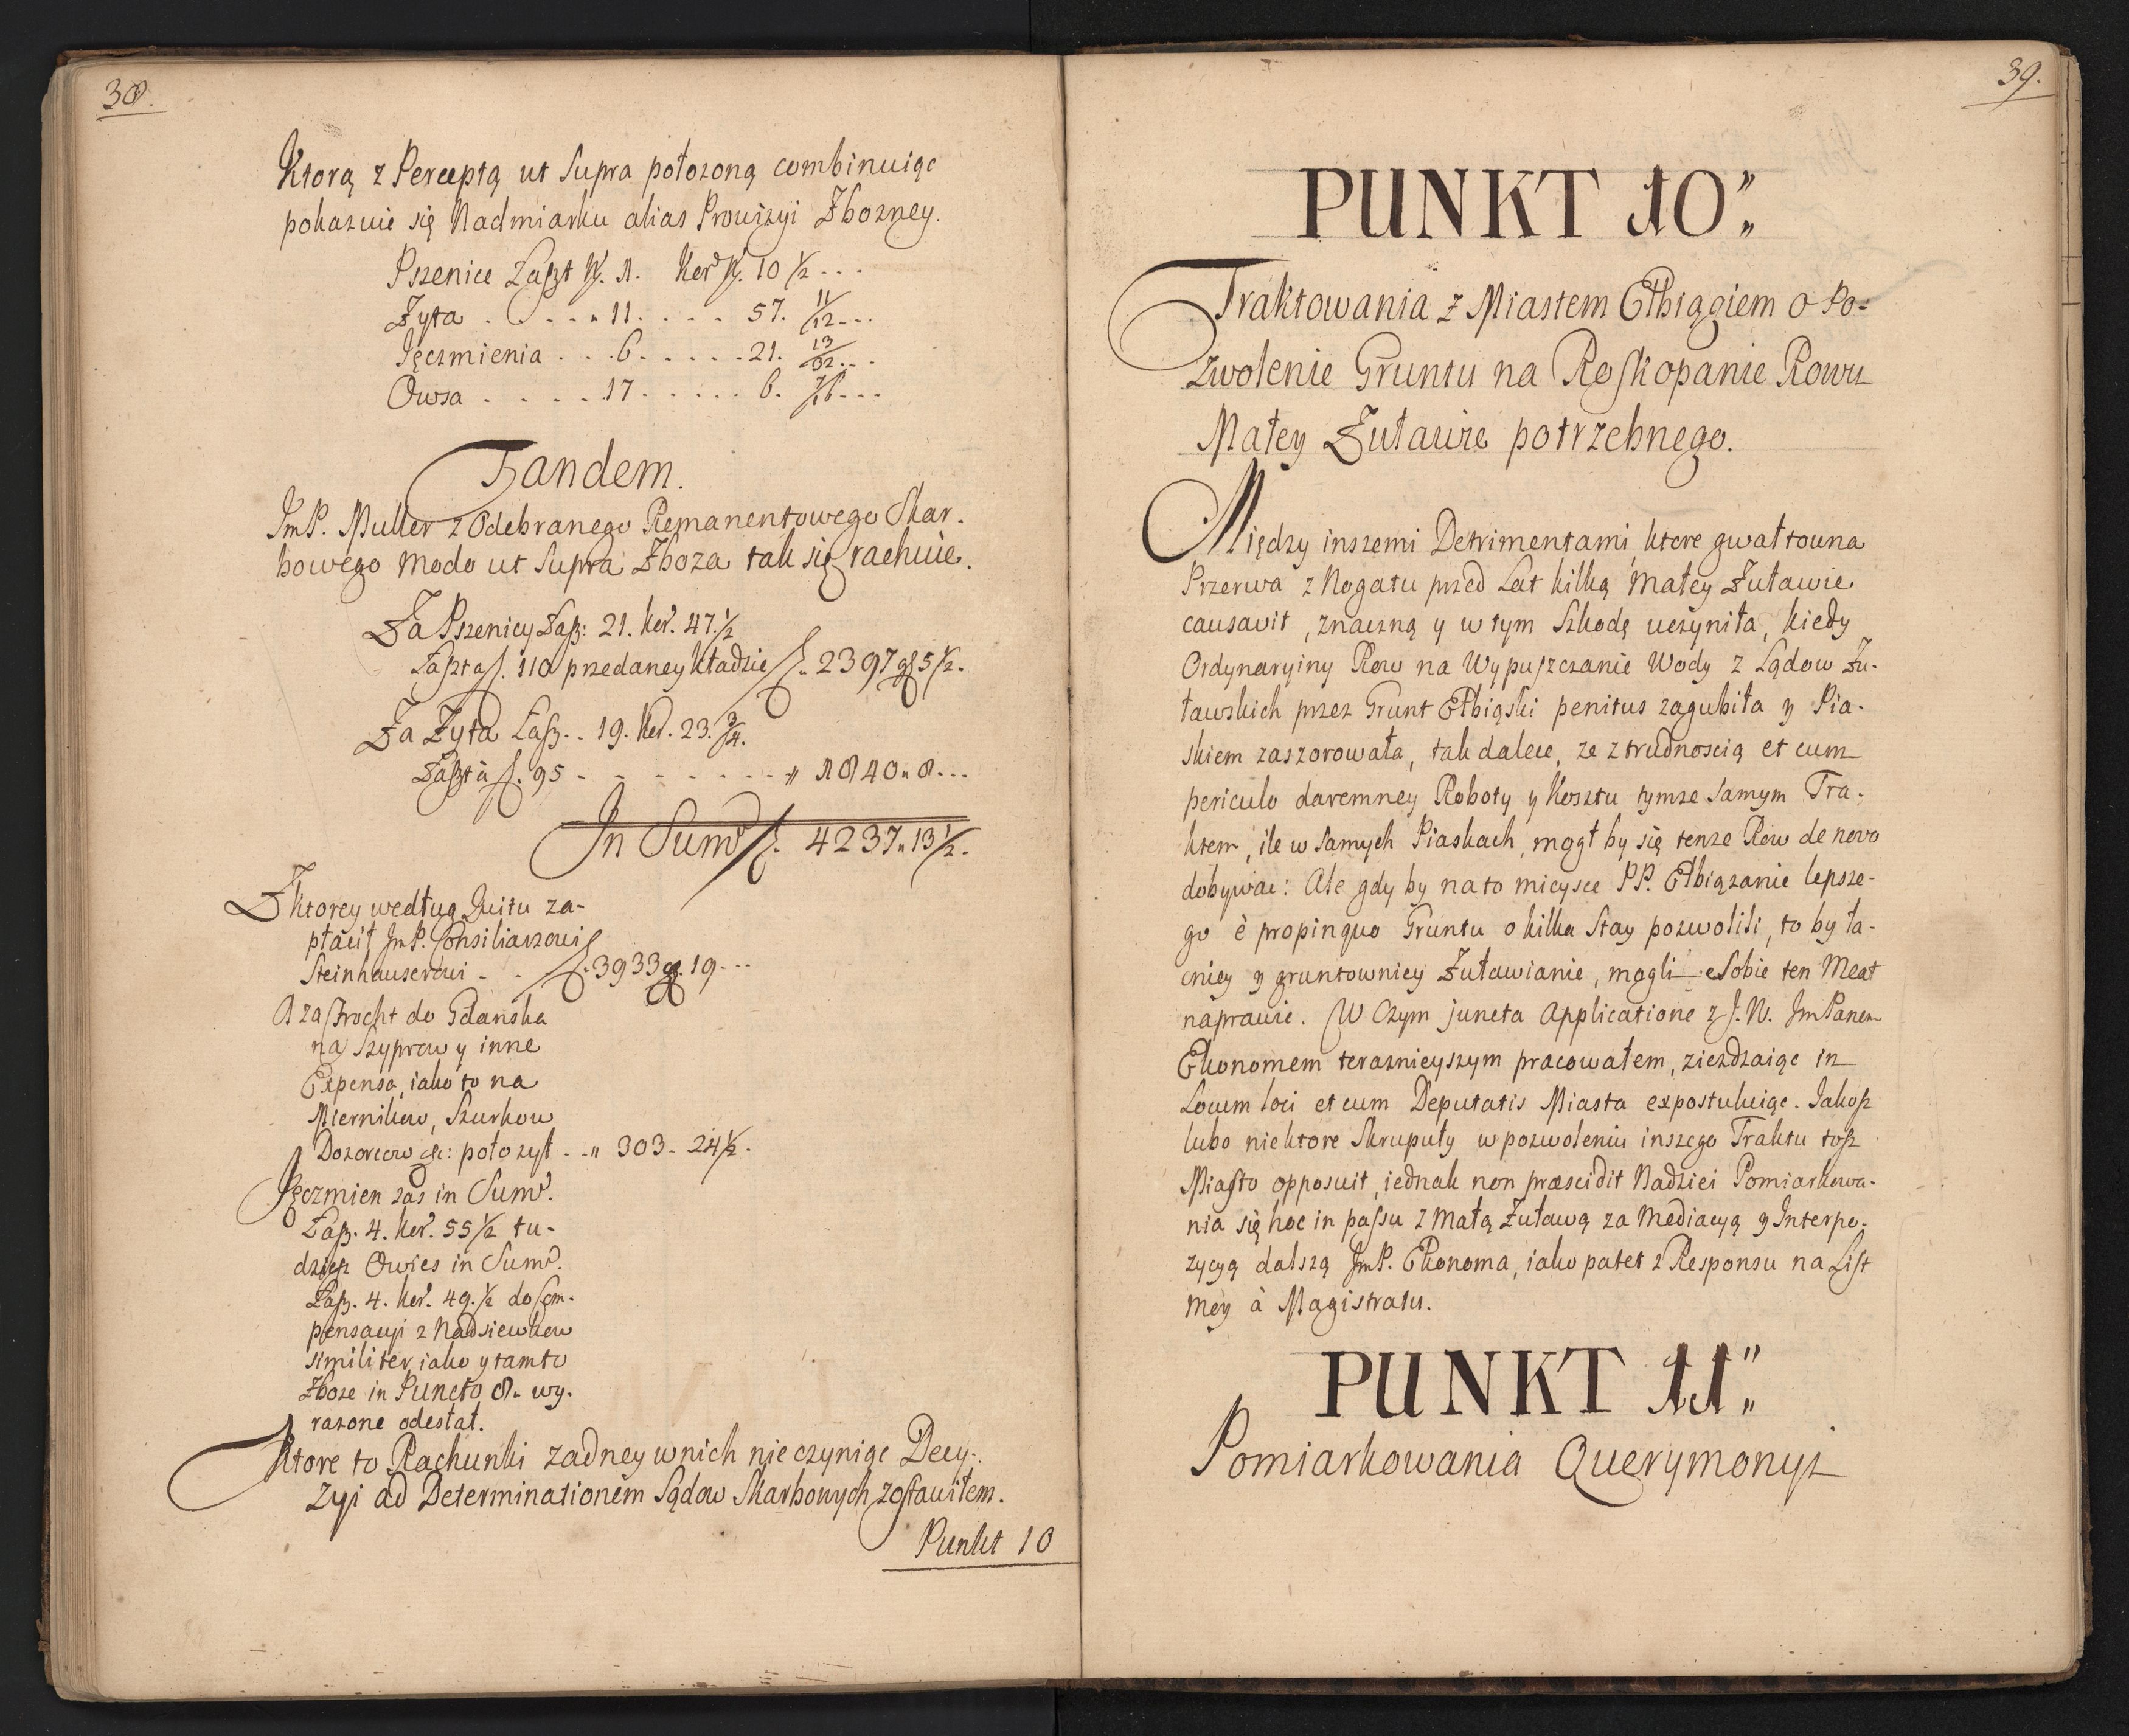 38.
Ktorą z Perceptą ut Supra położoną combinuiąc
pokazuie się Nadmiarku alias Prowizyi Zbożney.
Pszenice Łaszt N. 1. Kor. N. 10 1/2 . . .
Żyta . . . . . " 11. . . . . 57. 11/12 . . .
Jęczmienia . . . 6. . . . . . 21. 13/32 . . .
Owsa . . . . . 17 . . . . . 6. 7/16 . . .
Tandem.
JmP. Muller z Odebranego Remanentowego Skar-
bowego modo ut Supra Zboża tak się rachuie.
Za Pszenicy Łasz: 21. kor. 47. 1/2
Łaszt a f. 110 przedaney kładzie f. 2397 gr 5 1/2.
Za Żyta Łasz. . 19. kor. 23. 3/4.
Łaszt à f. 95 - - - - - - - - " 1840 " 8 . . .
In Sum. f. 4237 " 13 1/2.
Z ktorey według Quitu za-
płacił JmP. Consiliarzowi
Steinhauserowi - . f. 3933 gr. 19 . . .
A za Frocht do Gdańska
na Szyprow y inne
Expensa, iako to na
Miernikow, Szurkow
Dozorcow &c: położył . . " 303 - 24 1/2.
Jęczmien zas in Sum.
Łasz. 4. kor. 55 1/2 tu-
dziesz Owies in Sum.
Łasz. 4. kor. 49. 1/2 do Com-
pensacyi z Nadsiewkow
similiter iako y tamto
Zboże in Puncto 8. wy-
rażone odesłał.
Ktore to Rachunki żadney w nich nie czyniąc Decy-
zyi ad Determinationem Sądow Skarbowych zostawiłem.
Punkt 10
39.
PUNKT 10."
Traktowania z Miastem Elbiągiem o Po-
zwolenie Gruntu na Roskopanie Rowu
Małey Żuławie potrzebnego.
Między inszemi Detrimentami, ktore gwałtowna
Przerwa z Nogatu przed Lat kilką Małey Żuławie
causavit, znaczną y w tym Szkodę uczyniła, kiedy
Ordynaryiny Row na Wypuszczanie Wody z Lądow Żu-
ławskich przez Grunt Elbiąski penitus zagubiła y Pia-
skiem zaszorowała, tak dalece, ze z trudnoscią et cum
periculo daremney Roboty y Kosztu tymze samym Tra-
ktem, ile w samych Piaskach, mogł by się tenze Row de novo
dobywac: Ale gdy by na to mieysce PP. Elbiązanie lepsze-
go è propinquo Gruntu o kilka Stay pozwolili, to by ła-
cniey y gruntowniey Żuławianie, mogli Sobie ten Meat
naprawic. W Czym juncta Applicatione z J. W. JmPanem
Ekonomem teraznieyszym pracowałem, ziezdzaiąc in
Locum loci et cum Deputatis Miasta expostuluiąc. Jakosz
lubo niektore Skrupuły w pozwoleniu inszego Traktu tosz
Miasto opposuit, iednak non præscidit Nadziei Pomiarkowa-
nia się hoc in passu z Małą Żuławą za Mediacyą y Interpo-
zycyą dalszą JmP. Ekonoma, iako patet z Responsu na List
moy à Magistratu.
PUNKT 11."
Pomiarkowania Querymonyi